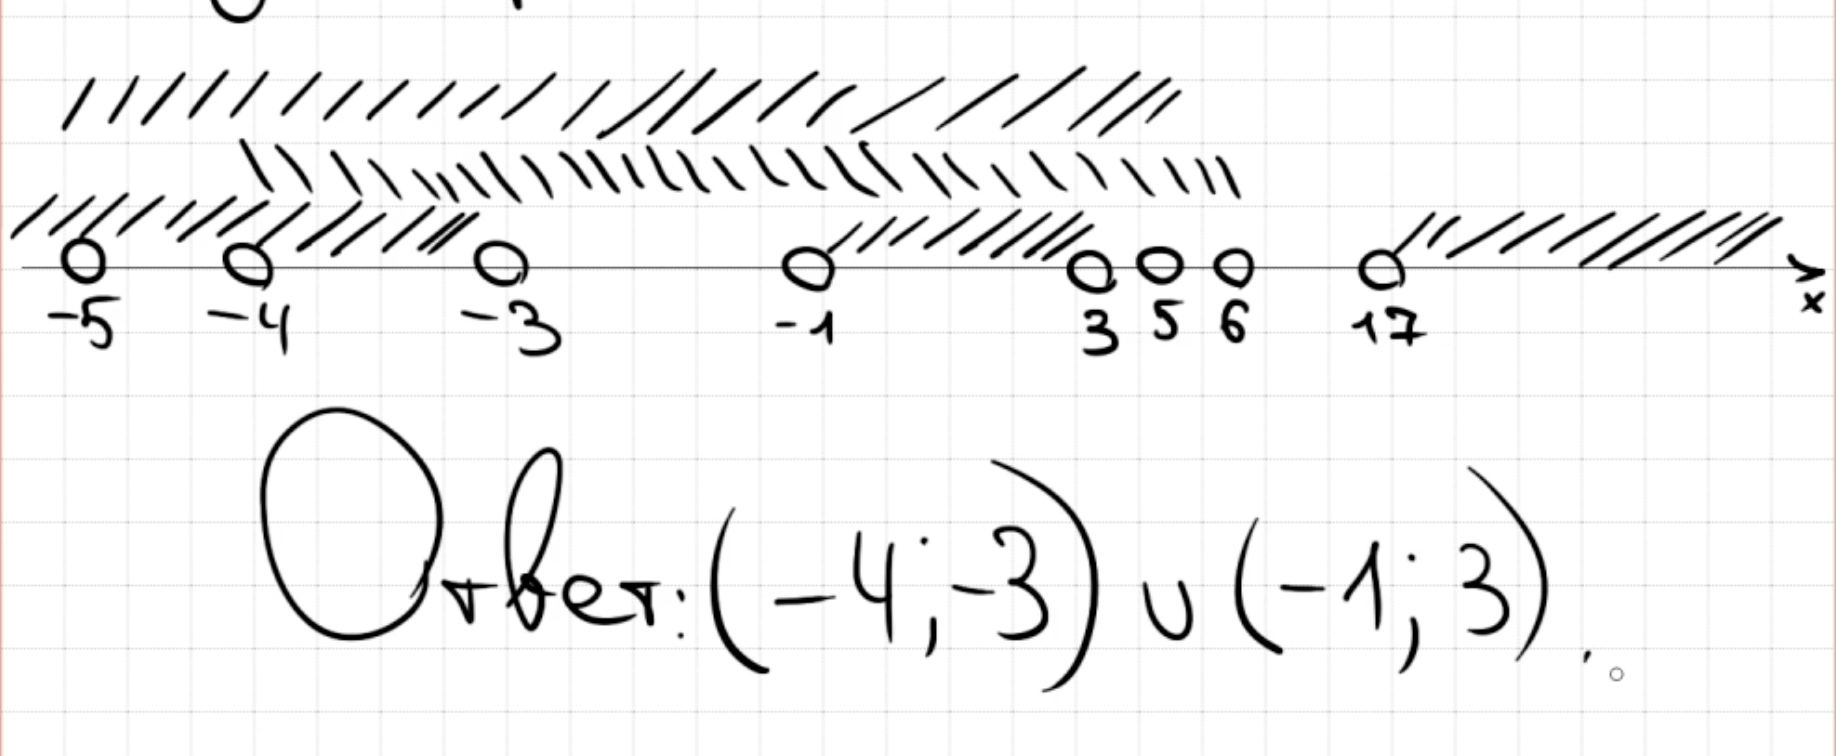 -5 -4 -3 -1 3 5 6 17 x
Ответ: (-4; -3) ∪ (-1; 3).